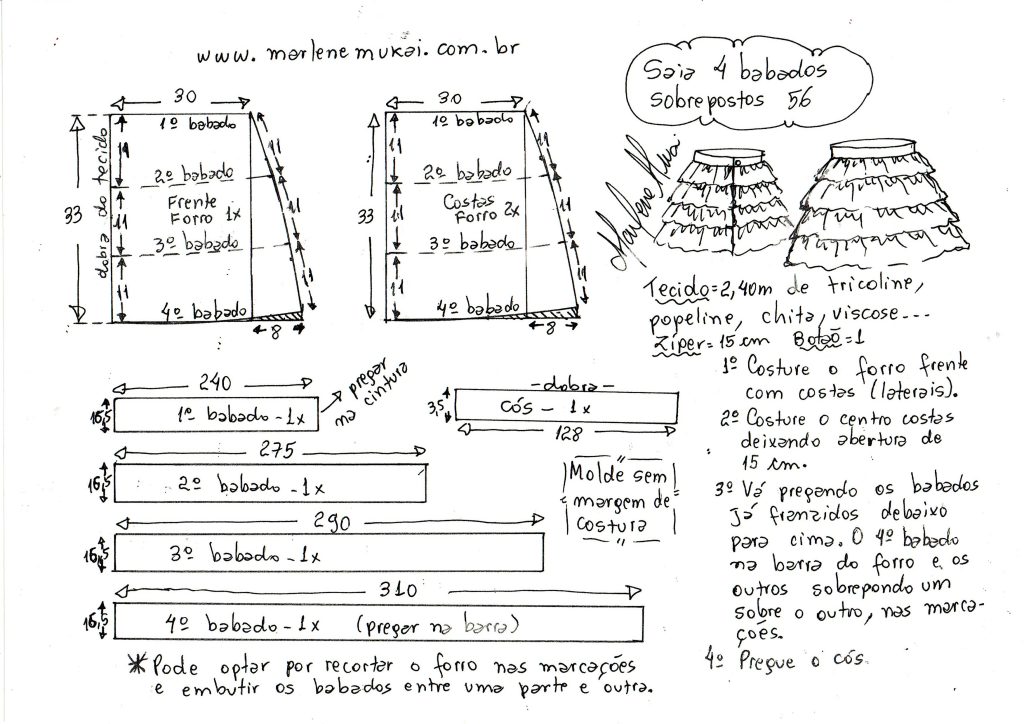 www.marlenemukai.com.br
Saia 4 babados
sobrepostos 56
30
1º babado
11
11
2º babado
Frente
Forro 1x
33
dobra do tecido
11
11
3º babado
11
11
4º babado
8
30
1º babado
11
11
2º babado
Costas
Forro 2x
33
11
11
3º babado
11
11
4º babado
8
Marlene Mukai
Tecido=2,40m de tricoline,
popeline, chita, viscose...
Zíper=15cm Botão=1
1º Costure o forro frente
com costas (laterais).
2º Costure o centro costas
deixando abertura de
15 cm.
3º Vá pregando os babados
já franzidos debaixo
para cima. O 4º babado
na barra do forro e os
outros sobrepondo um
sobre o outro, nas marca-
ções.
4º Pregue o cós.
240
16,5
1º babado - 1x
pregar
na cintura
-dobra-
3,5
cós - 1x
128
275
16,5
2º babado - 1x
Molde sem
margem de
costura
290
16,5
3º babado - 1x
310
16,5
4º babado - 1x (pregar na barra)
* Pode optar por recortar o forro nas marcações
e embutir os babados entre uma parte e outra.